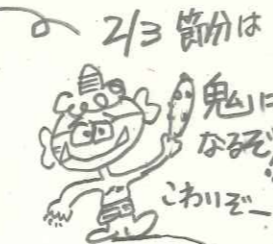 2/3 節分は
鬼に
なるぞ
こわいぞー